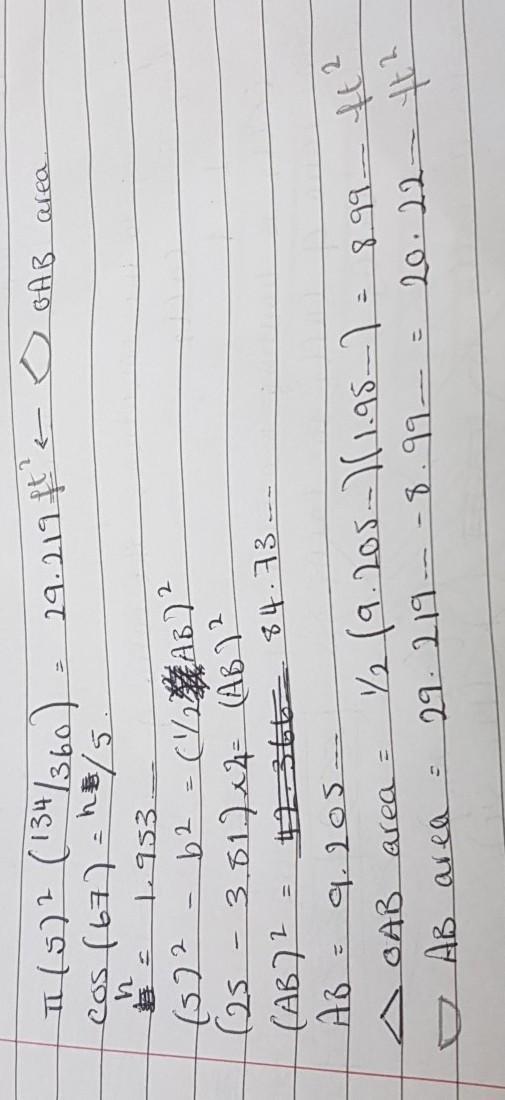 π(5)² (134/360) = 29.219 ft² ← OAB area.
cos(67) = h/5.
h = 1.953...
(5)² - b² = (1/2 AB)²
(25 - 3.81) x4 = (AB)²
(AB)² = 42.366 84.73...
AB = 9.205...
△ OAB area = 1/2 (9.205...)(1.95...) = 8.99... ft²
AB area = 29.219... - 8.99... = 20.22... ft²